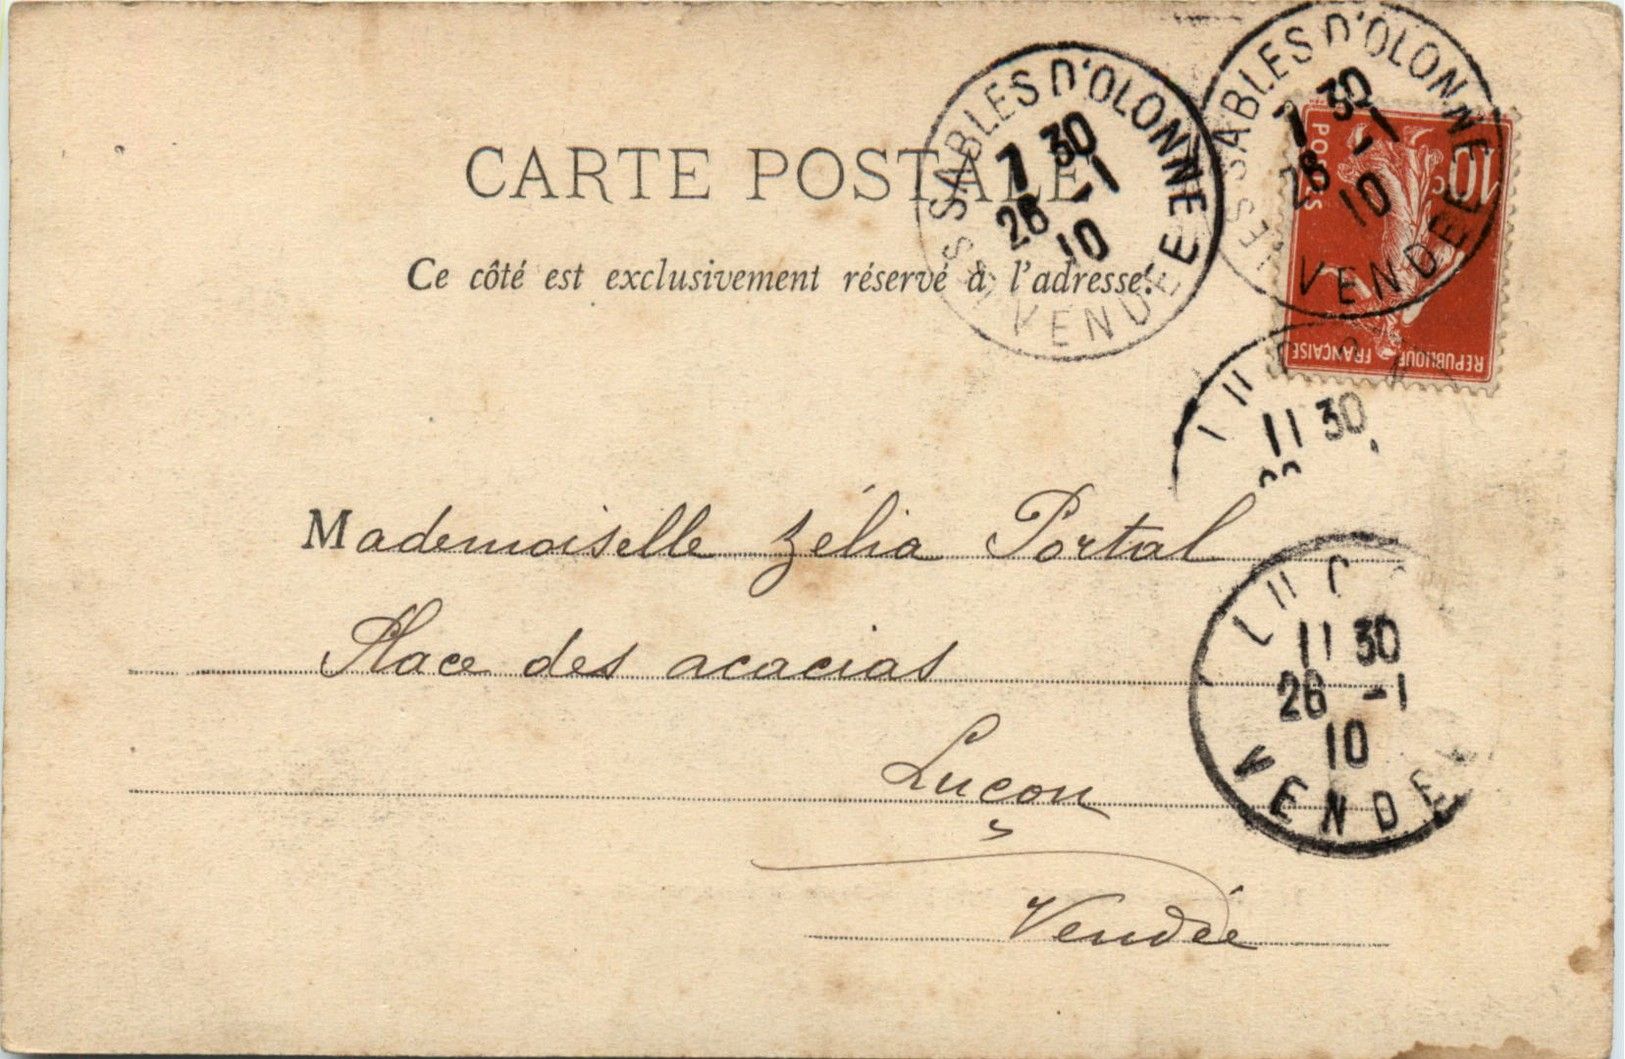 CARTE POSTALE
Ce côté est exclusivement réservé à l'adresse.
LES SABLES D'OLONNE
7 30
26 -1
10
VENDÉE
LES SABLES D'OLONNE
7 30
26 -1
10
VENDÉE
POSTES
10c
REPUBLIQUE FRANÇAISE
11 30
Mademoiselle Zélia Portal
Place des acacias
Luçon
Vendée
11 30
26 -1
10
VENDÉE